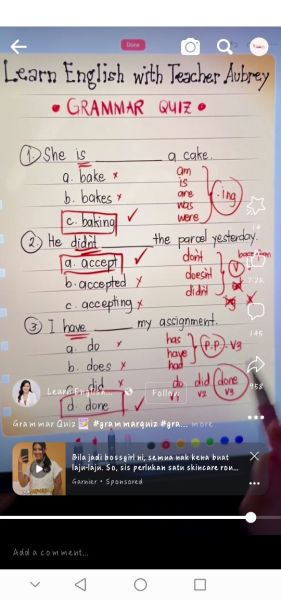 Done
Learn English with Teacher Aubrey
• GRAMMAR QUIZ •
① She is ______ a cake.
a. bake x
b. bakes x
c. baking ✓
am
is
are
was
were
-ing
② He didn't ______ the parcel yesterday.
a. accept ✓
b. accepted x
c. accepting x
don't
doesn't
didn't
③ I have ______ my assignment.
a. do x
b. does x
c. did x
d. done ✓
has
have
had
P.P. - V3
do did done
V1 V2 V3
145
958
Learn English...
Follow
Grammar Quiz 📝 #grammarquiz #gra... more
Bila jadi bossgirl ni, semua nak kena buat
laju-laju. So, sis perlukan satu skincare rou...
Garnier • Sponsored
Add a comment...